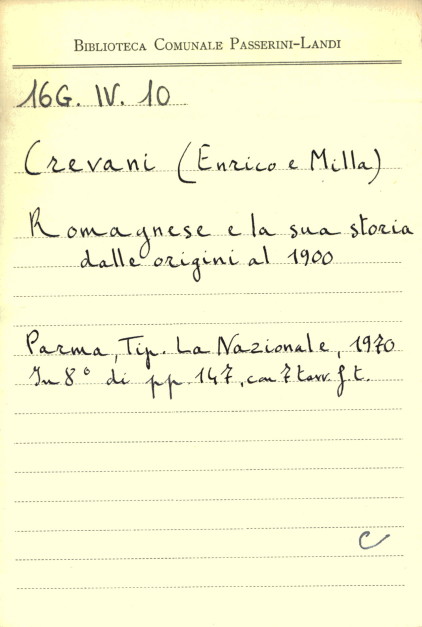 BIBLIOTECA COMUNALE PASSERINI-LANDI
16G. IV. 10
Crevani (Enrico e Milla)
Romagnese e la sua storia
dalle origini al 1900
Parma, Tip. La Nazionale, 1970
In 8° di pp. 147, con 7 tavv. f. t.
C